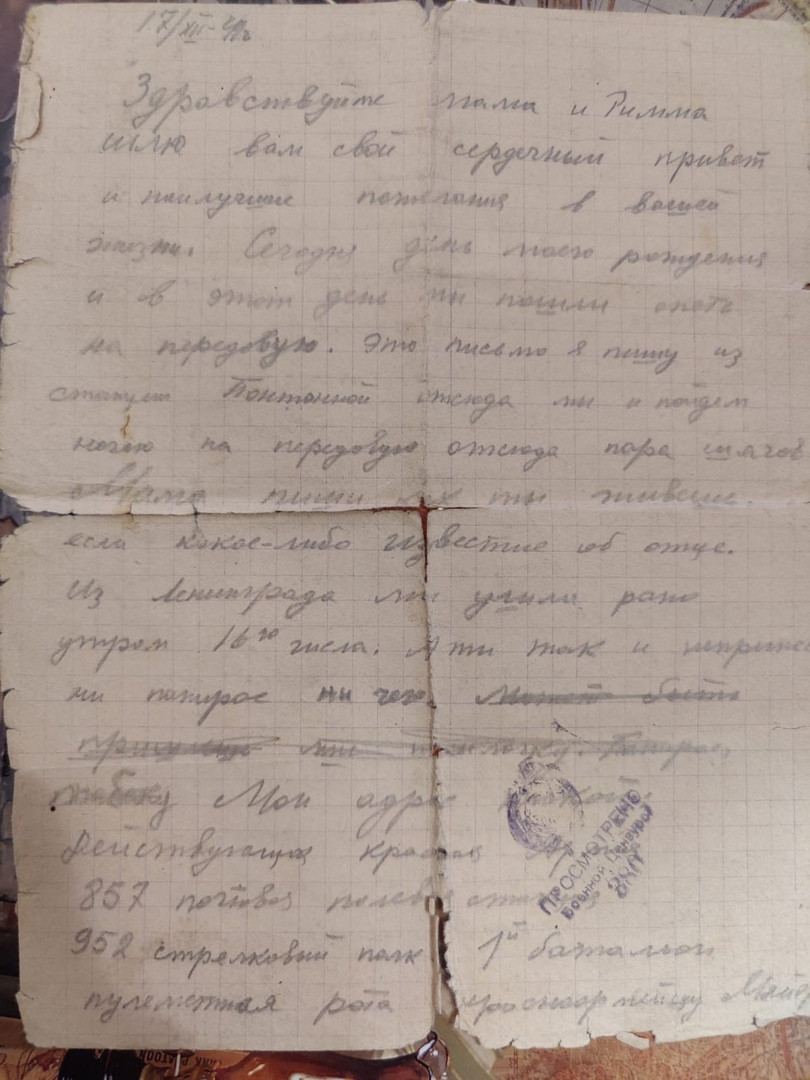 17/XII-41г
Здравствуйте мама и Римма
шлю вам свой сердечный привет
и наилучшие пожелания в вашей
жизни. Сегодня день моего рождения
и в этот день мы пошли опять
на передовую. Это письмо я пишу из
станции Понтонной отсюда мы и пойдем
ночью на передовую отсюда пара шагов
Мама пиши как ты живешь.
если какое-либо известие об отце.
Из Ленинграда мы ушли рано
утром 16го числа. А ты так и
ни папирос ни чего. Может быть
пришлешь мне посылочку. Папирос,
табаку Мой адрес такой:
Действующая красная Армия
857 почтовая полевая станция
952 стрелковый полк 1й батальон
пулеметная рота красноармейцу
ПРОСМОТРЕНО
Военной Цензурой